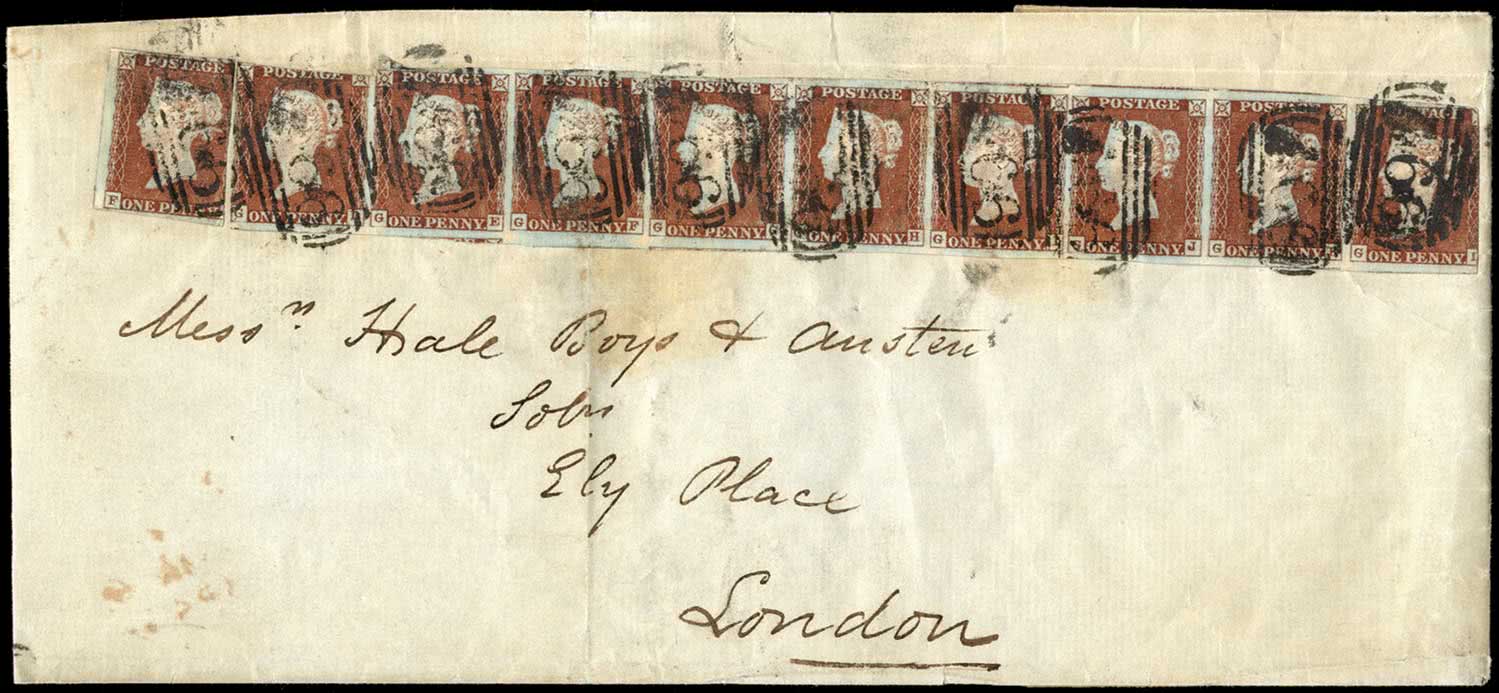 POSTAGE POSTAGE POSTAGE POSTAGE POSTAGE POSTAGE POSTAGE POSTAGE POSTAGE
F ONE G ONE PENNY G ONE PENNY E G ONE PENNY F G ONE PENNY ONE PENNY H G ONE PENNY ONE PENNY J G ONE PENNY G ONE PENNY I
Messrs Hale Boys & Austen
Solrs
Ely Place
London